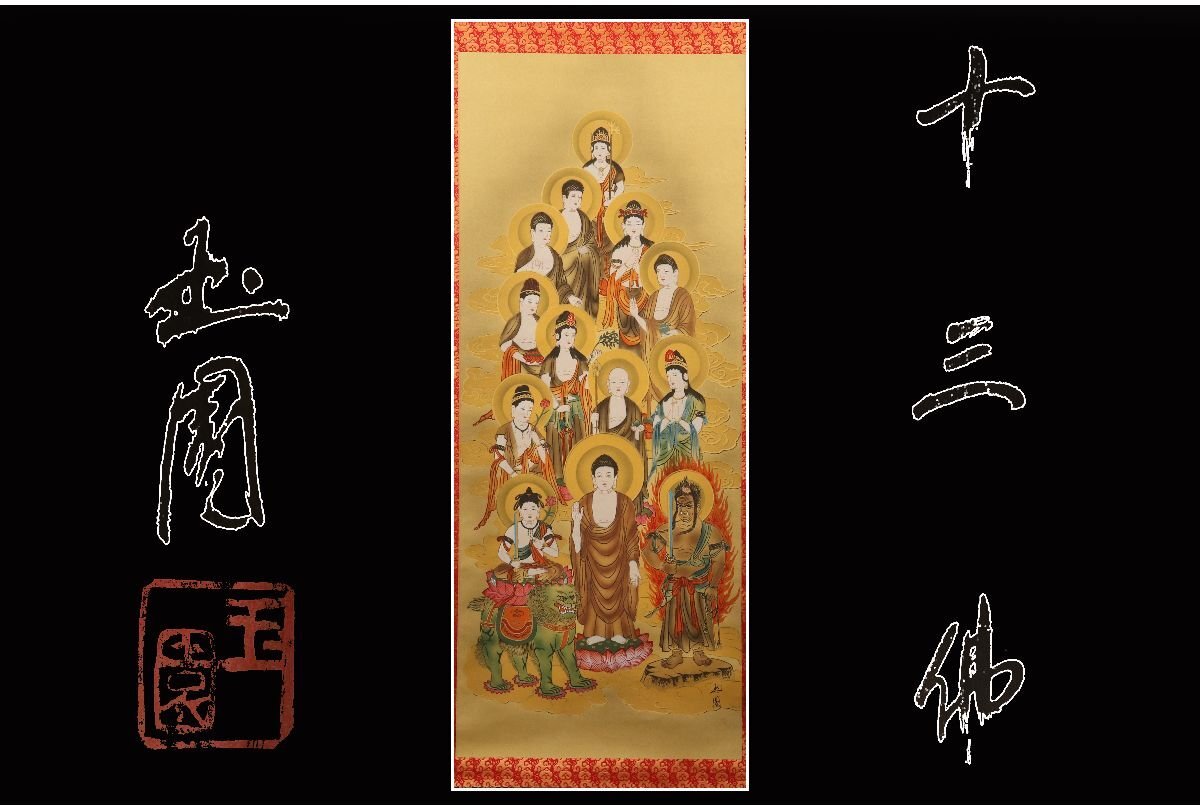 十三佛
玉園
玉園
玉園